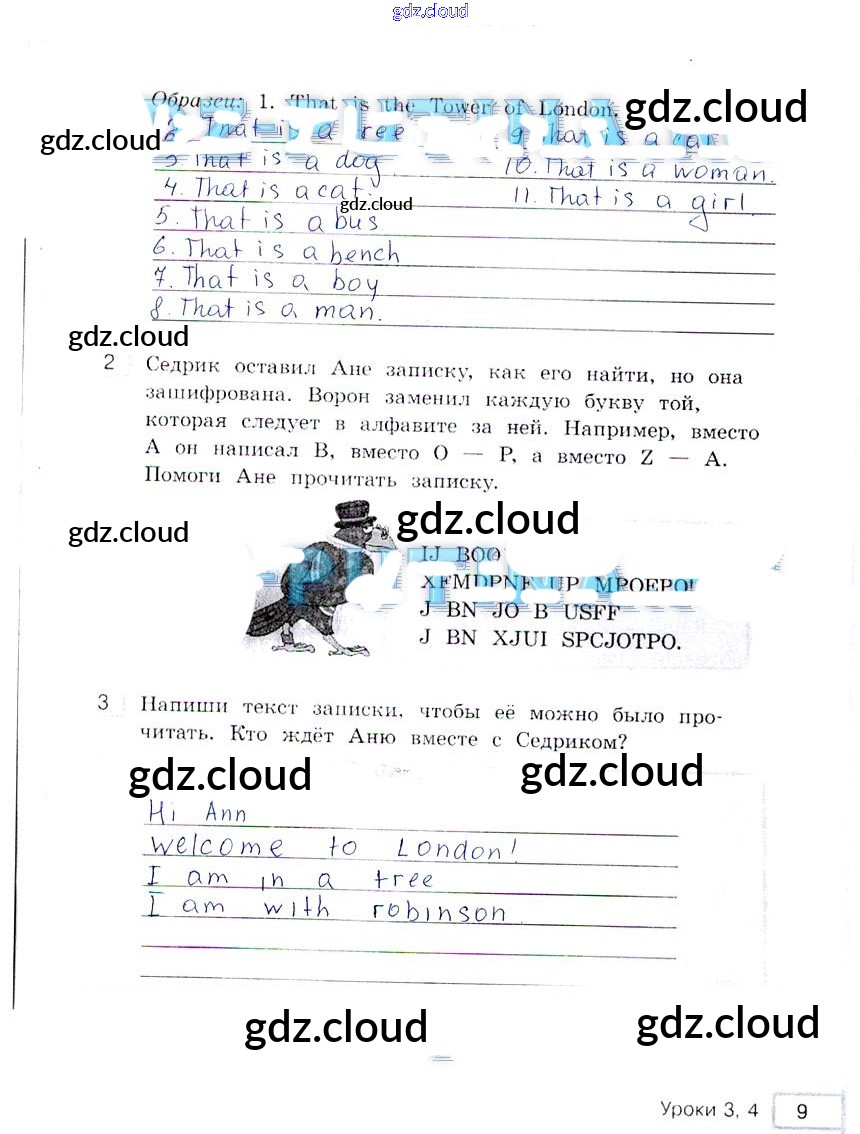 gdz.cloud
Образец: 1. That is the Tower of London.
gdz.cloud
gdz.cloud
2. That is a tree
9. That is a car
3. That is a dog.
10. That is a woman.
4. That is a cat.
11. That is a girl
gdz.cloud
5. That is a bus
6. That is a bench
7. That is a boy
8. That is a man.
gdz.cloud
2 Седрик оставил Ане записку, как его найти, но она
зашифрована. Ворон заменил каждую букву той,
которая следует в алфавите за ней. Например, вместо
A он написал B, вместо O — P, а вместо Z — A.
Помоги Ане прочитать записку.
gdz.cloud
gdz.cloud
IJ BOO
XFMDPNF UP MPOEPO
J BN JO B USFF
J BN XJUI SPCJOTPO.
3 Напиши текст записки, чтобы её можно было про-
читать. Кто ждёт Аню вместе с Седриком?
gdz.cloud
gdz.cloud
Hi Ann
Welcome to London!
I am in a tree
I am with robinson
gdz.cloud
gdz.cloud
Уроки 3, 4
9